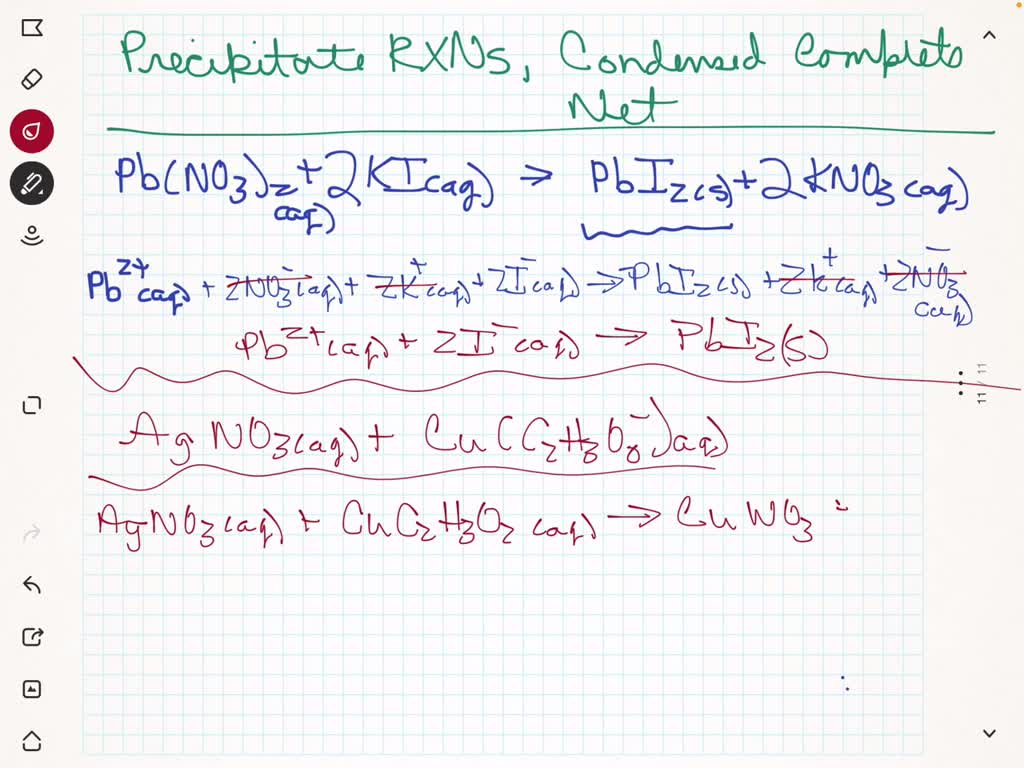 Precipitate RXNs, Condensed Complete
Net
Pb(NO3)2(aq) + 2KI(aq) → PbI2(s) + 2KNO3(aq)
Pb2+(aq) + 2NO3-(aq) + 2K+(aq) + 2I-(aq) → PbI2(s) + 2K+(aq) + 2NO3-(aq)
Pb2+(aq) + 2I-(aq) → PbI2(s)
11 / 11
AgNO3(aq) + Cu(C2H3O
AgNO3(aq) + CuC2H3O2(aq) → CuNO3